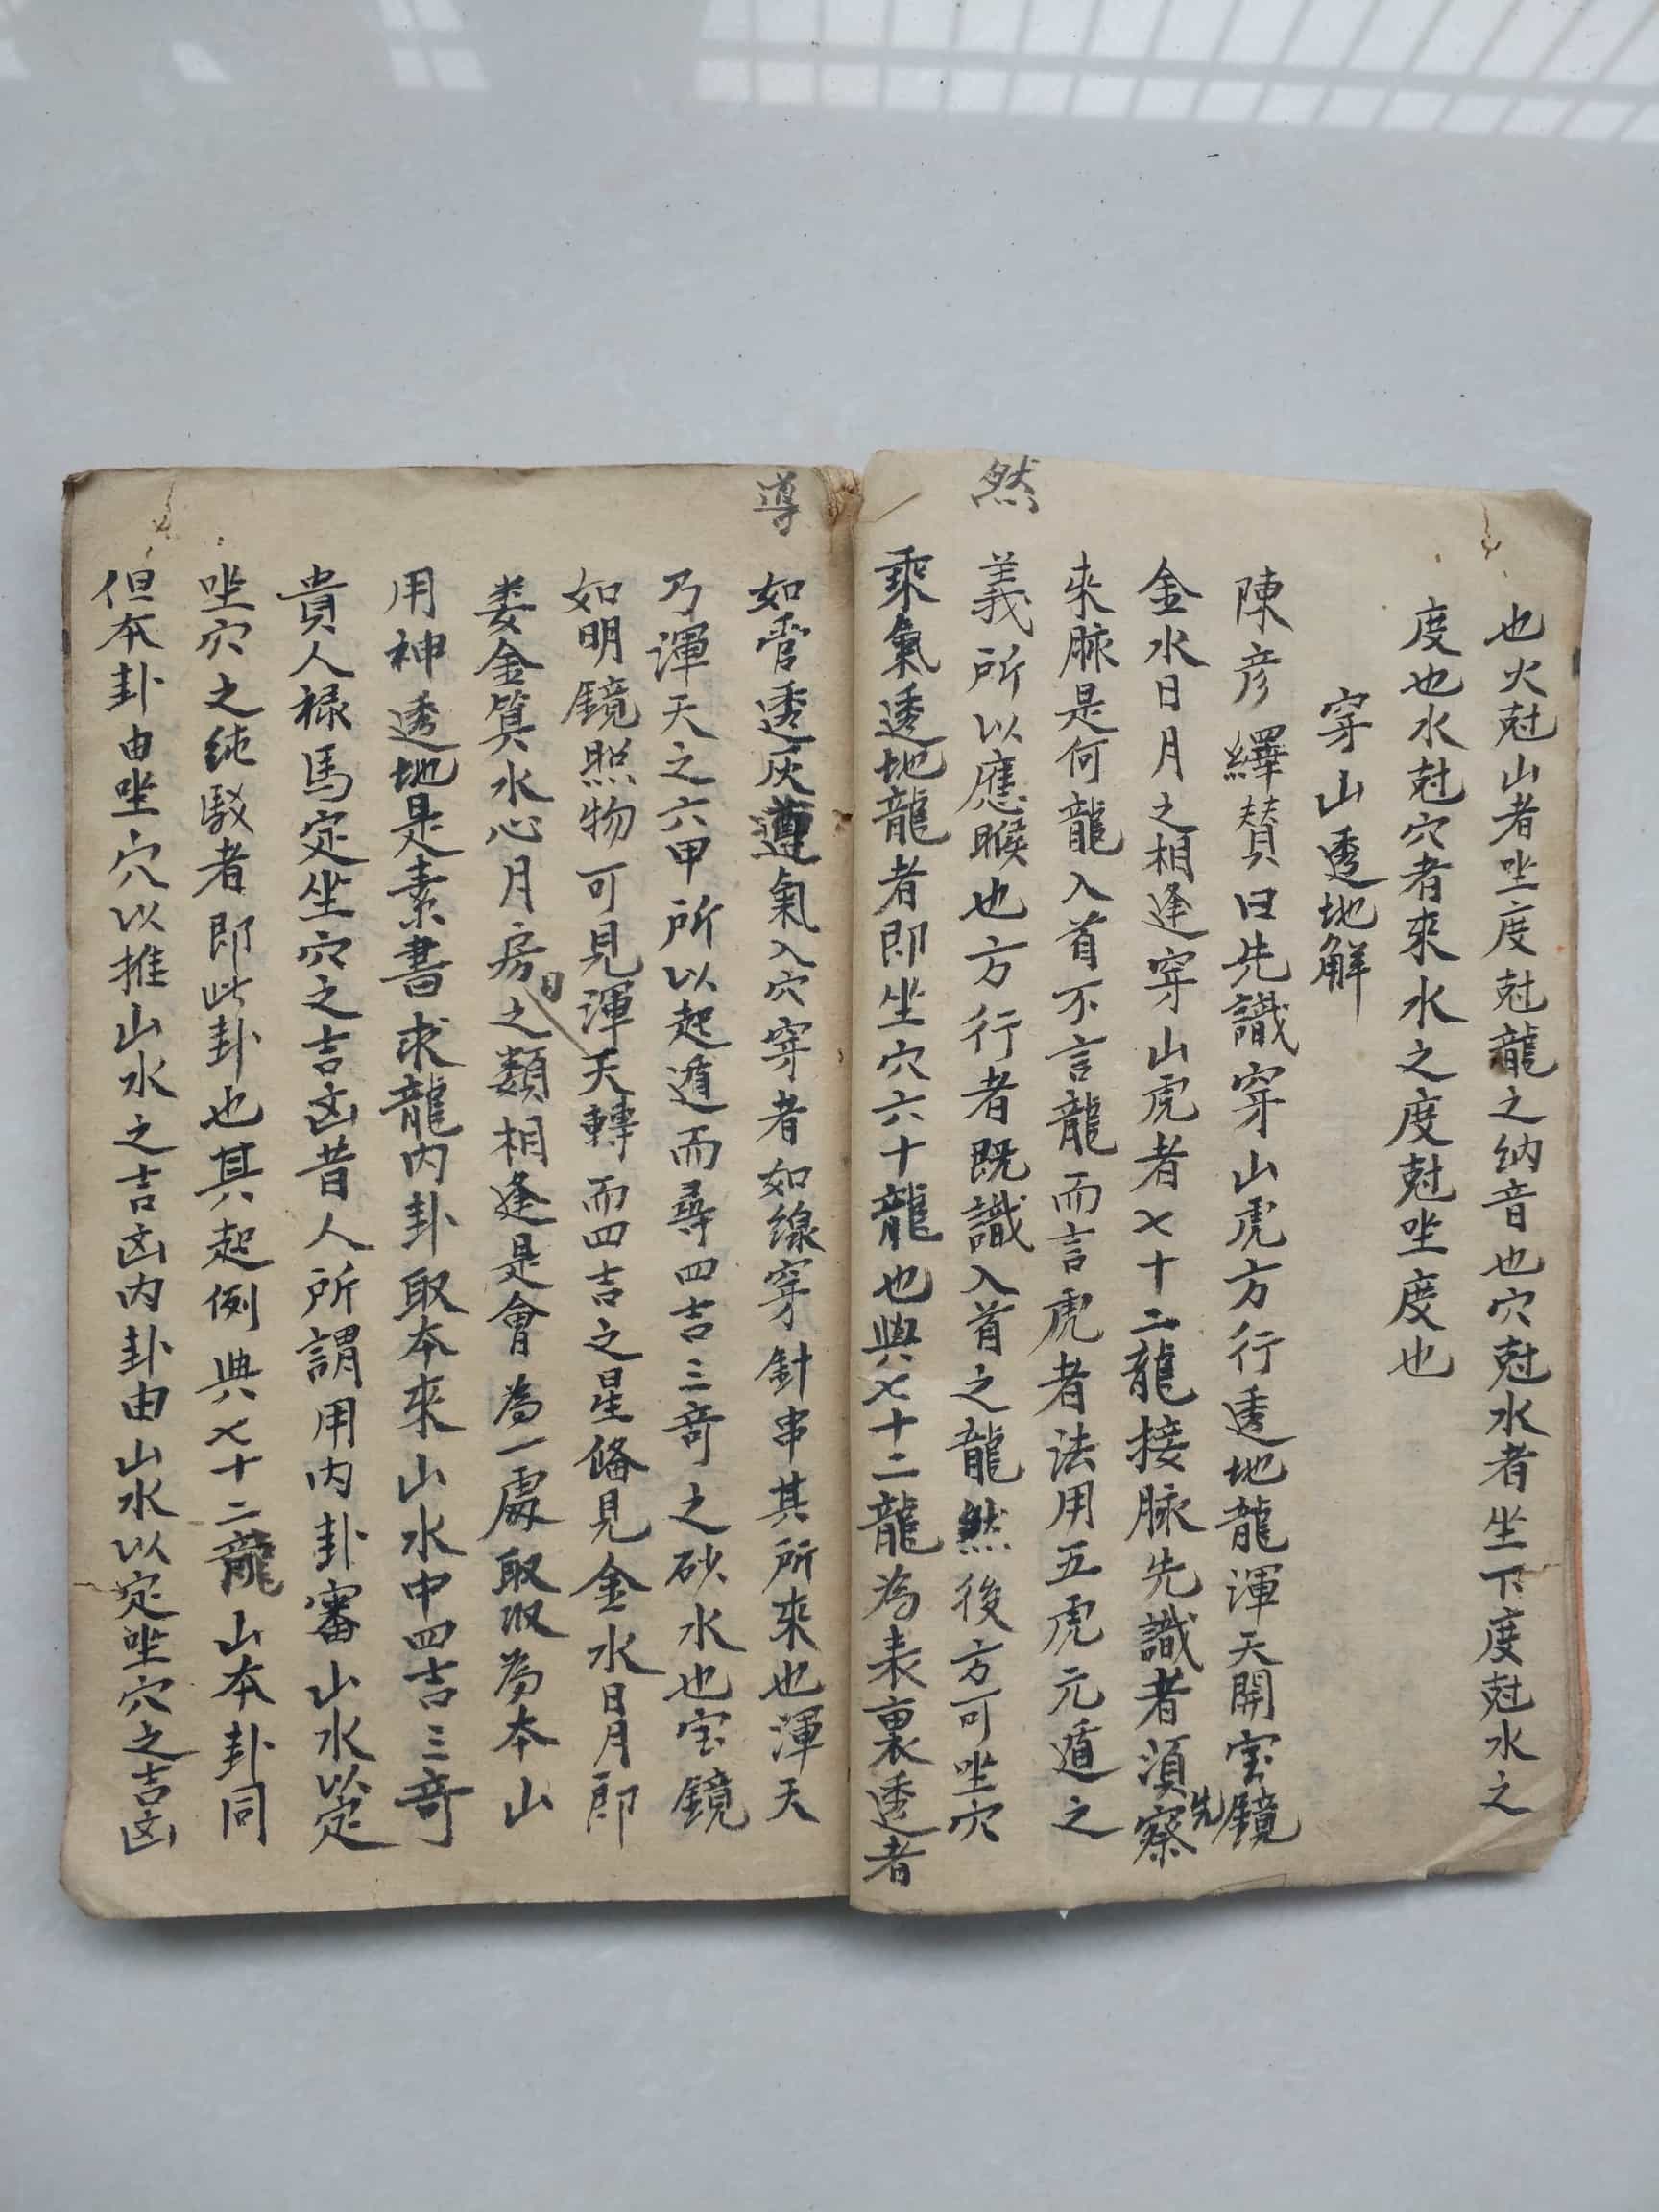 也火尅山者坐度尅龍之纳音也穴尅水者坐下度尅水之
度也水尅穴者來水之度尅坐度也
穿山透地解
陳彦繹賛曰先識穿山虎方行透地龍渾天開宝鏡
金水日月之相逢穿山虎者七十二龍接脉先識者須先察
來脉是何龍入首不言龍而言虎者法用五虎元遁之
然
義所以應睺也方行者既識入首之龍然後方可坐穴
乘氣透地龍者即坐穴六十龍也與七十二龍為表裏透者
導
如管透灰遵氣入穴穿者如線穿針串其所來也渾天
乃渾天之六甲所以起遁而尋四吉三奇之砂水也宝鏡
如明鏡照物可見渾天轉而四吉之星俻見金水日月即
娄金箕水心月房日之類相逢是會為一處取取為本山
用神透地是素書求龍内卦取本來山水中四吉三奇
貴人禄馬定坐穴之吉凶昔人所謂用内卦審山水以定
坐穴之純駁者即此卦也其起例與七十二龍山本卦同
但本卦由坐穴以推山水之吉凶内卦由山水以定坐穴之吉凶